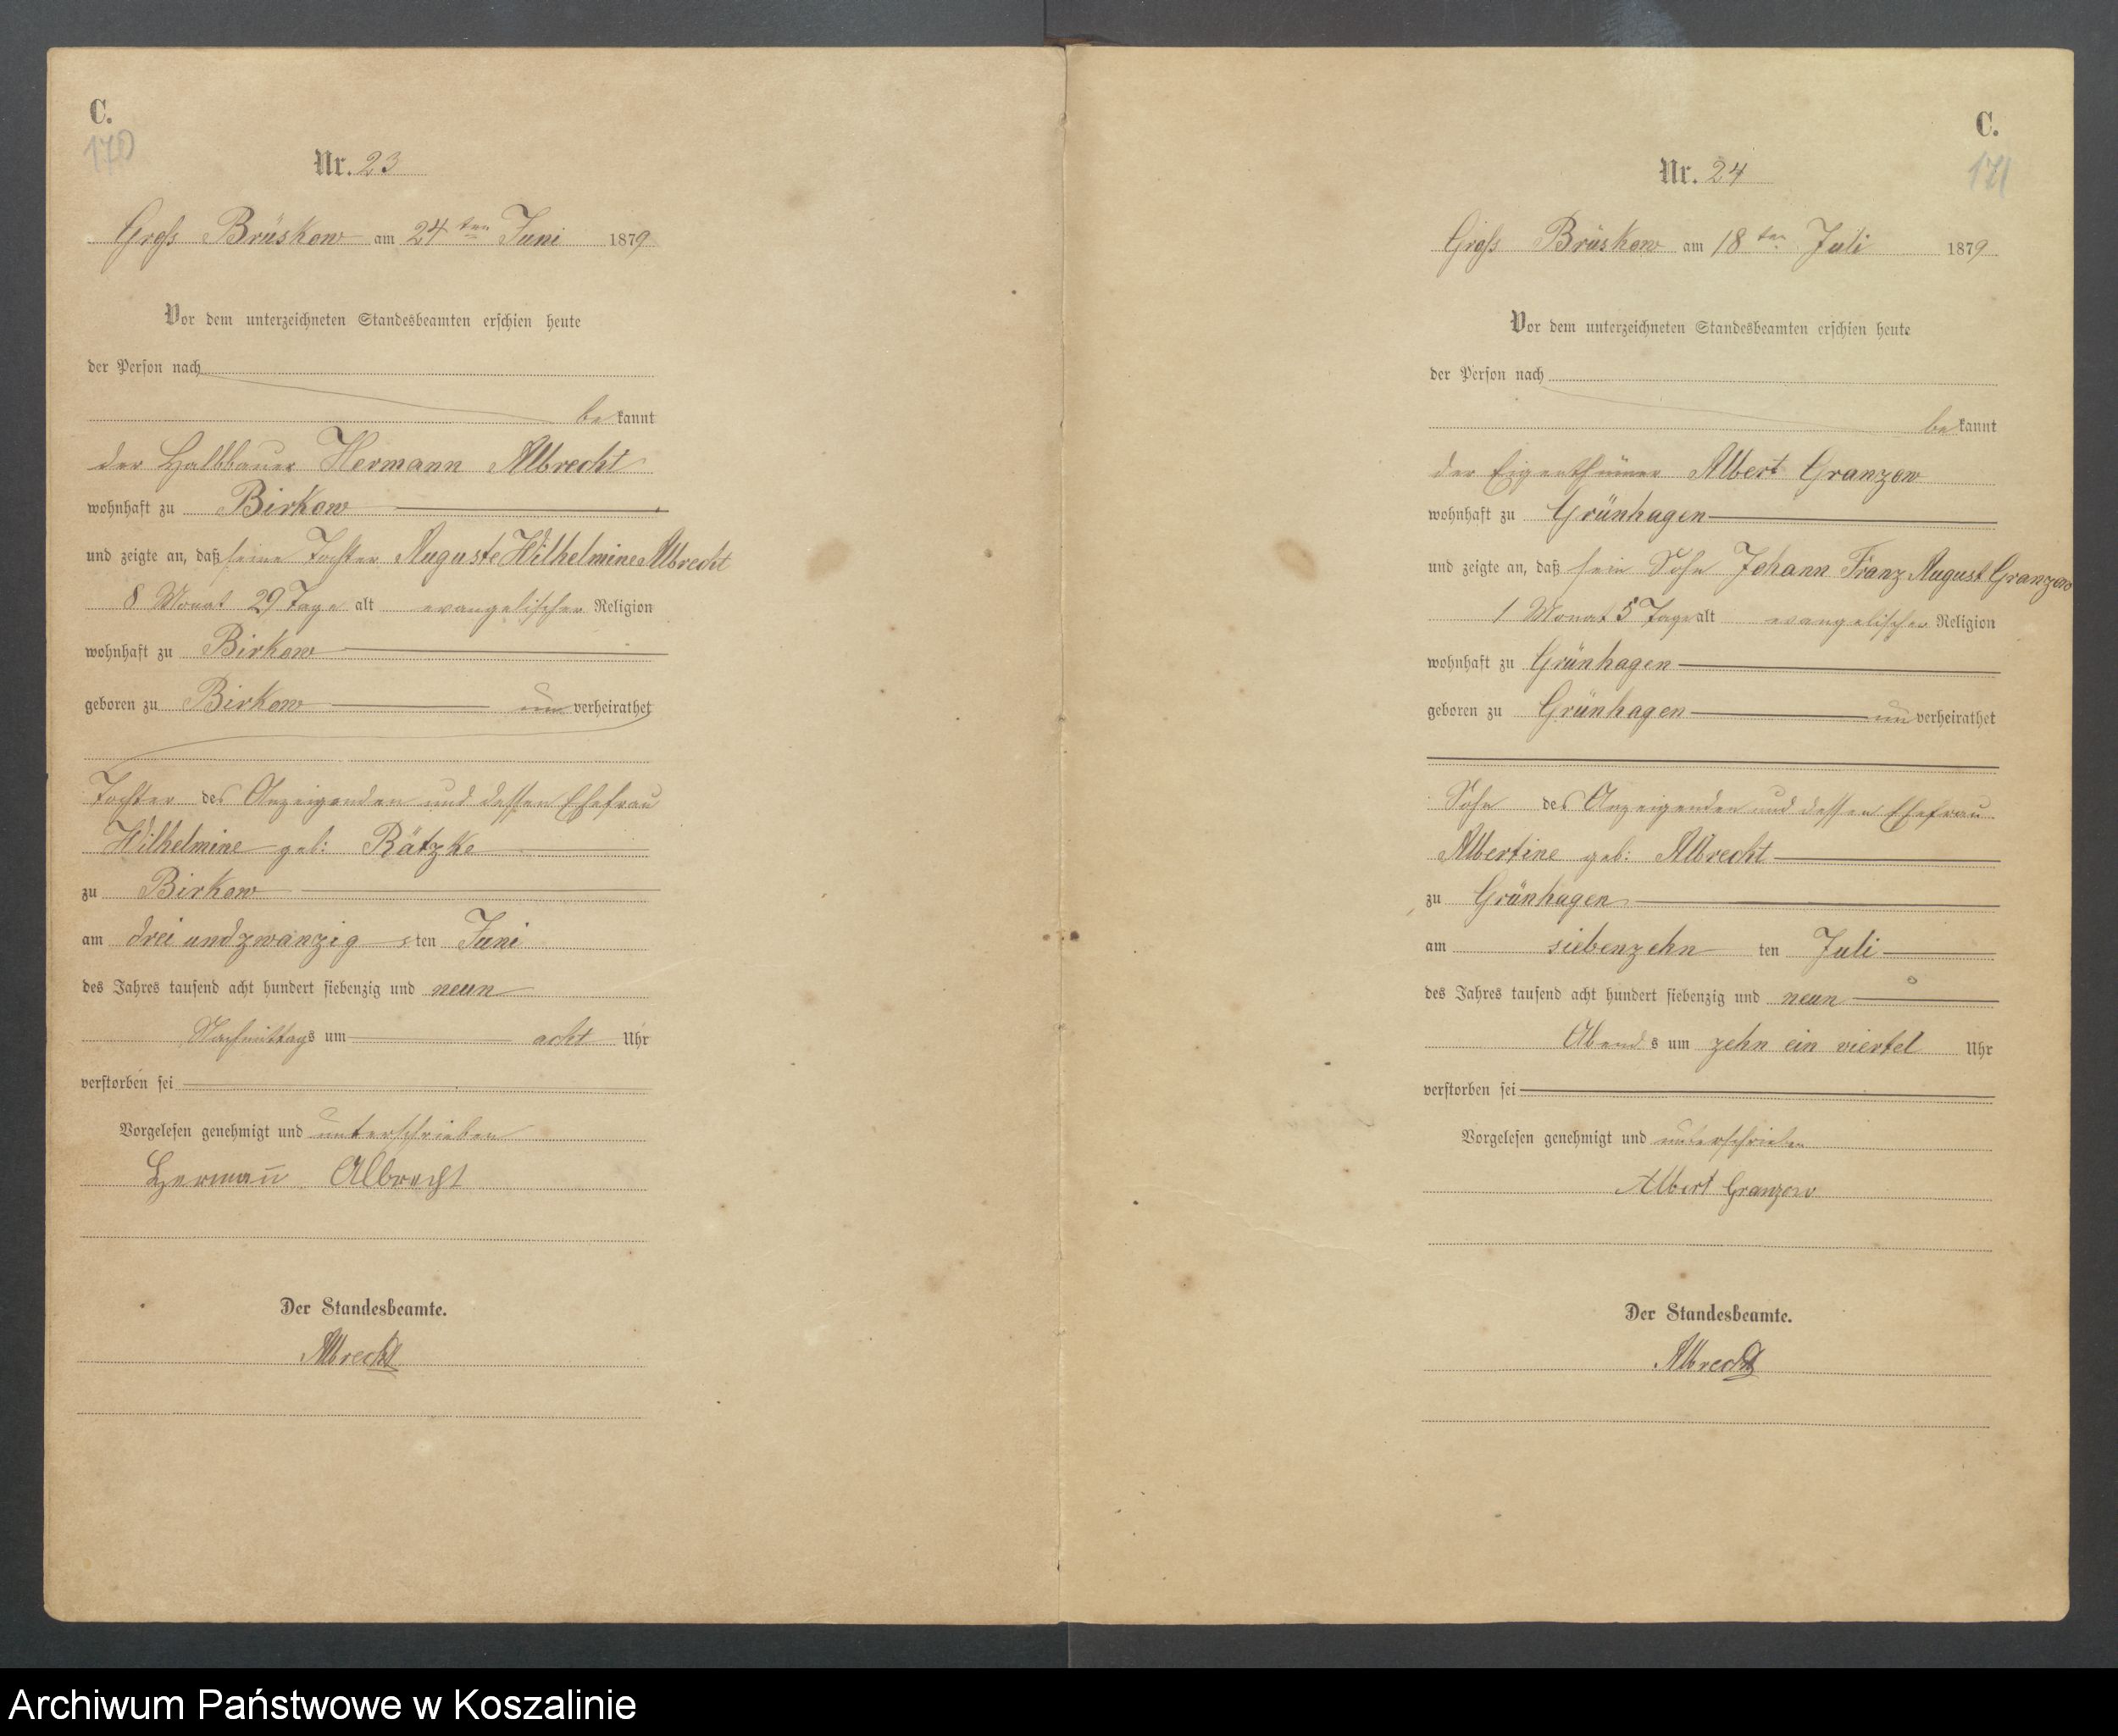 C.
170
Nr. 23
Gross Brüskow am 24ten Juni 1879
Vor dem unterzeichneten Standesbeamten erschien heute
der Person nach
bekannt
der Halbbauer Hermann Albrecht
wohnhaft zu Birkow
und zeigte an, daß seine Tochter Auguste Wilhelmine Albrecht
8 Monat 29 Tage alt evangelischer Religion
wohnhaft zu Birkow
geboren zu Birkow unverheirathet
Tochter des Anzeigenden und dessen Ehefrau
Wilhelmine geb: Rätzke
zu Birkow
am drei und zwanzigsten Juni
des Jahres tausend acht hundert siebenzig und neun
Nachmittags um acht Uhr
verstorben sei
Vorgelesen genehmigt und unterschrieben
Hermann Albrecht
Der Standesbeamte.
Albrecht
C.
171
Nr. 24
Gross Brüskow am 18ten Juli 1879
Vor dem unterzeichneten Standesbeamten erschien heute
der Person nach
bekannt
der Eigenthümer Albert Granzow
wohnhaft zu Grünhagen
und zeigte an, daß sein Sohn Johann Franz August Granzow
1 Monat 5 Tage alt evangelischer Religion
wohnhaft zu Grünhagen
geboren zu Grünhagen unverheirathet
Sohn des Anzeigenden und dessen Ehefrau
Albertine geb: Albrecht
zu Grünhagen
am siebenzehnten Juli
des Jahres tausend acht hundert siebenzig und neun
Abends um zehn ein viertel Uhr
verstorben sei
Vorgelesen genehmigt und unterschrieben
Albert Granzow
Der Standesbeamte.
Albrecht
Archiwum Państwowe w Koszalinie